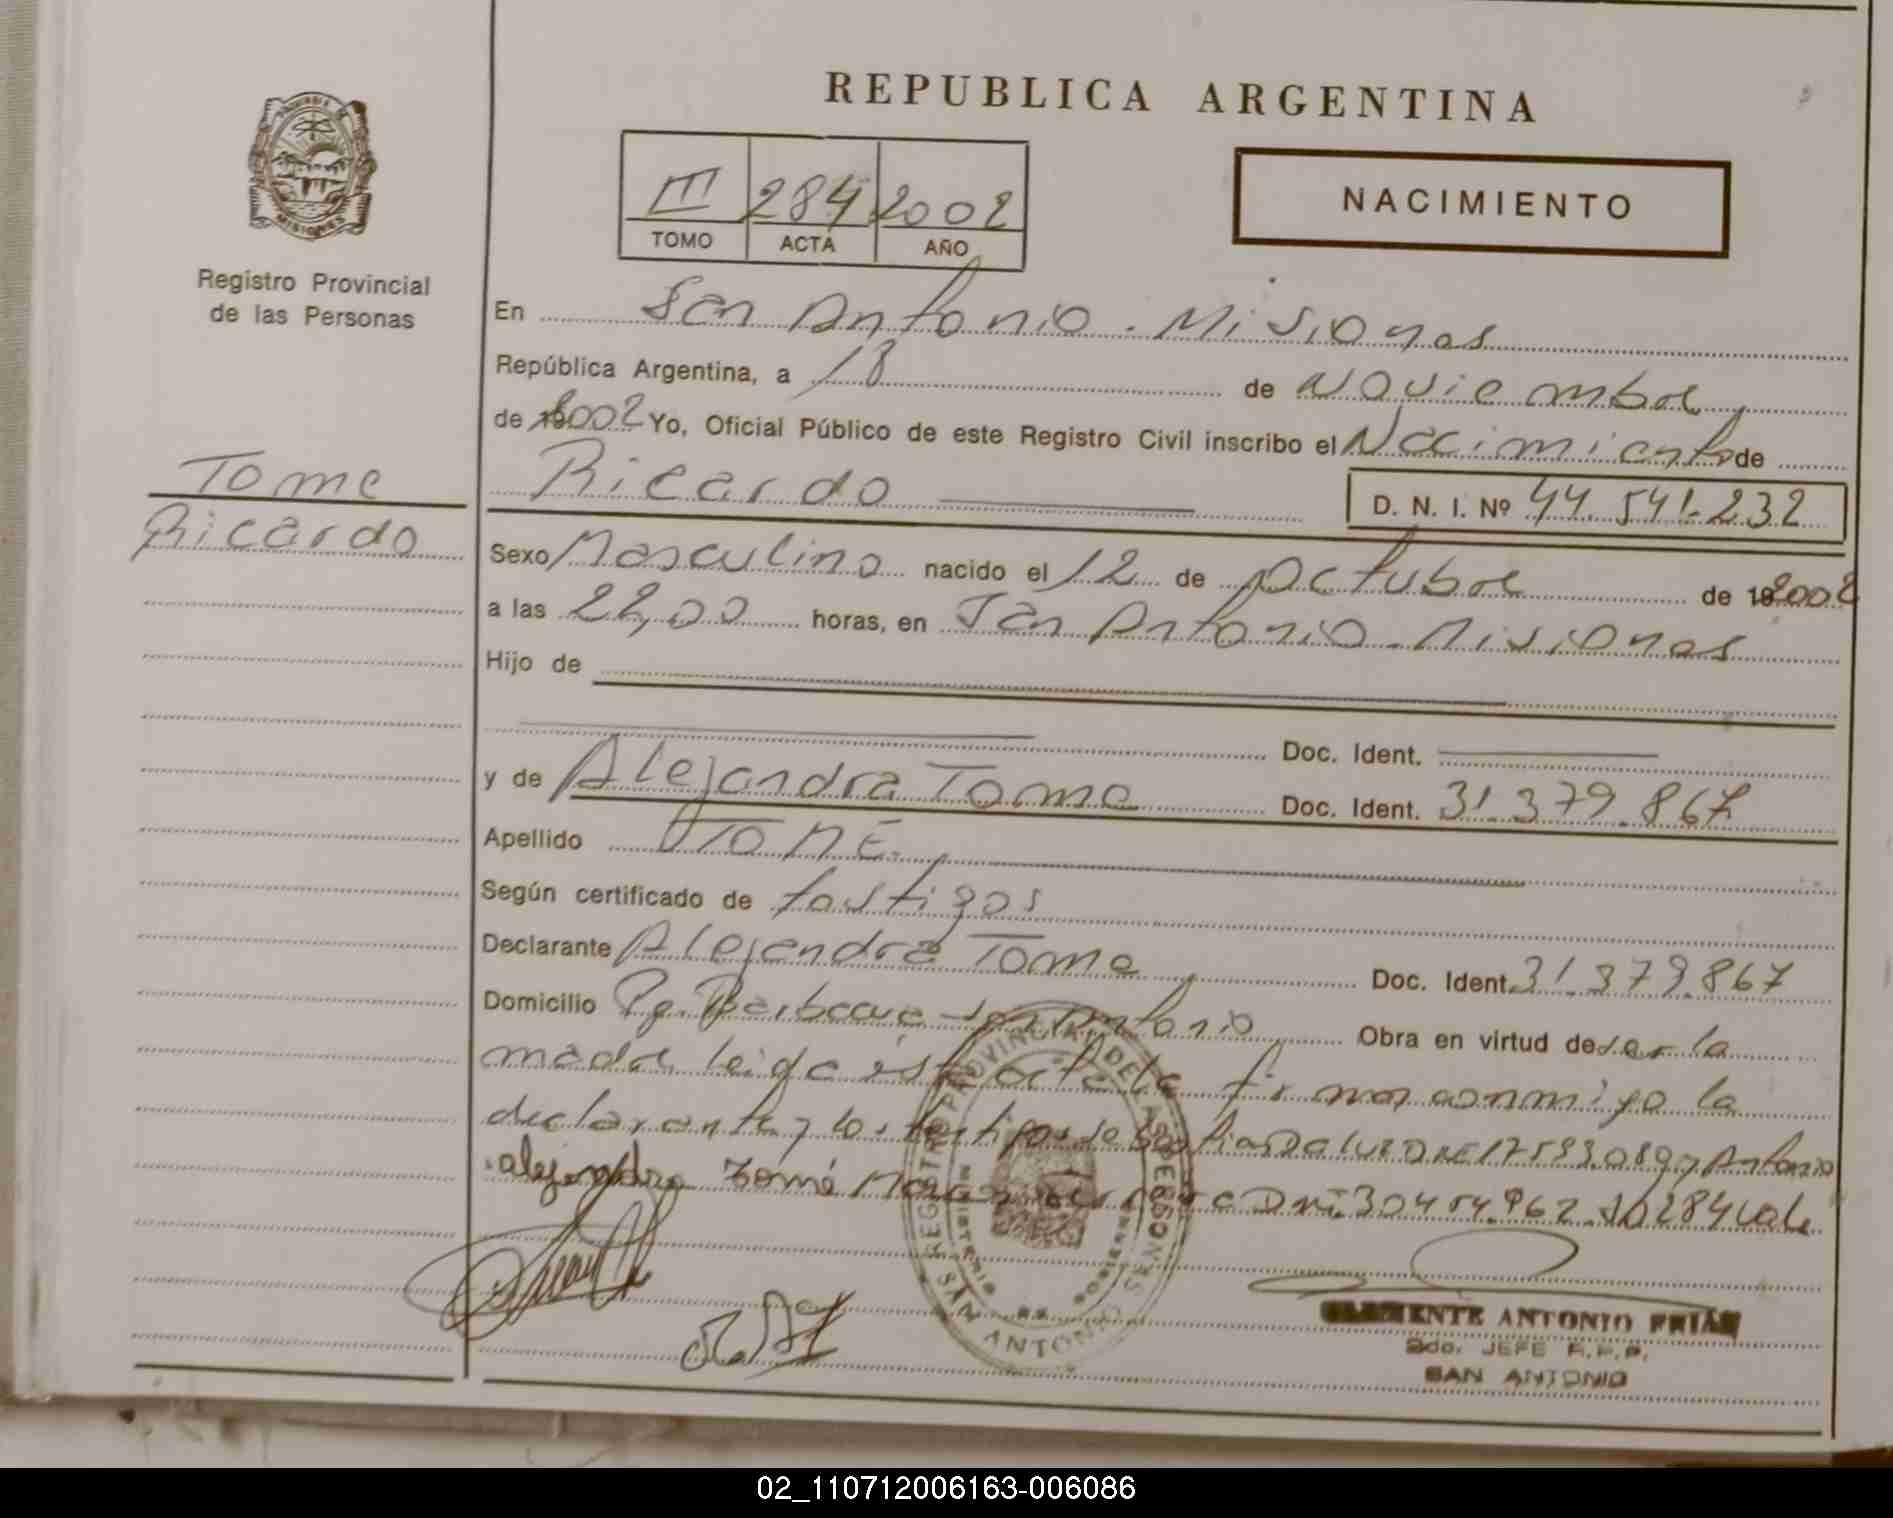 REPUBLICA ARGENTINA
III 284 2002
TOMO ACTA AÑO
NACIMIENTO
MISIONES
Registro Provincial
de las Personas
Tome
Ricardo
En San Antonio - Misiones
República Argentina, a 18 de Noviembre
de 2002 Yo, Oficial Público de este Registro Civil inscribo el Nacimiento de
Ricardo D. N. I. Nº 44.541.232
Sexo Masculino nacido el 12 de Octubre de 2002
a las 22,00 horas, en San Antonio - Misiones
Hijo de
Doc. Ident.
y de Alejandra Tome Doc. Ident. 31.379.867
Apellido TOME.
Según certificado de testigos
Declarante Alejandra Tome Doc. Ident. 31.379.867
Domicilio San Antonio Obra en virtud de ser la
madre leida esta acta la firman conmigo la
declarante y los testigos Antonio
284 vale
alejandra Tomé
REGISTRO PROVINCIAL DE LAS PERSONAS
SAN ANTONIO
CLEMENTE ANTONIO FRIAS
2do. JEFE R.P.P.
SAN ANTONIO
02_110712006163-006086